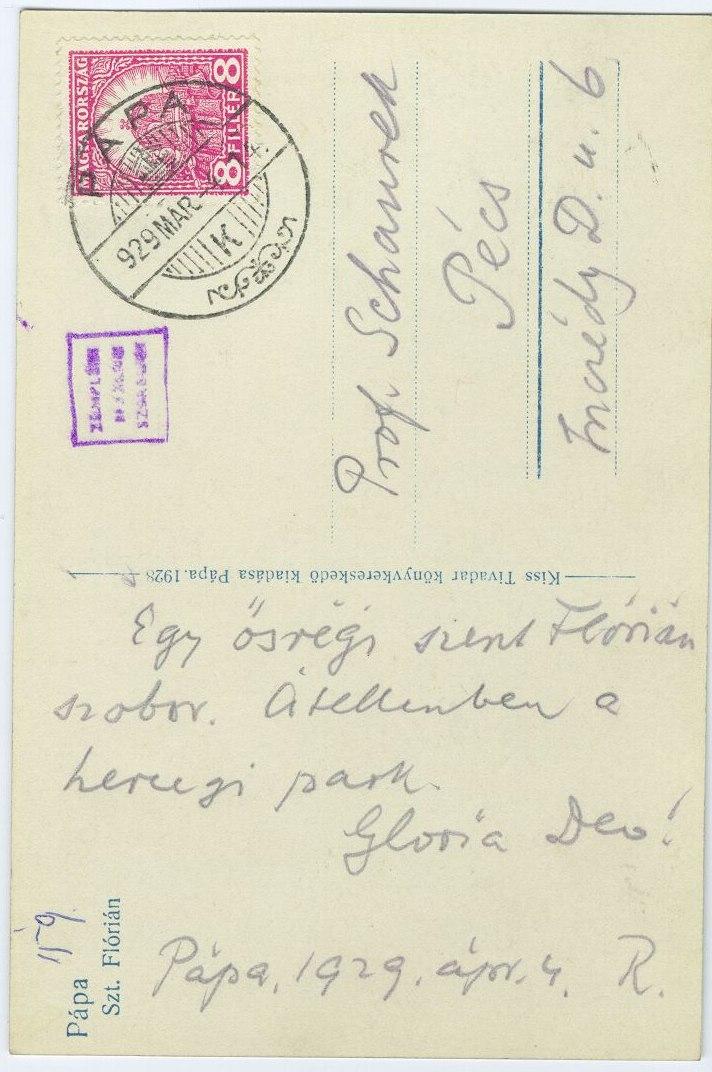 MAGYARORSZÁG
8 FILLÉR 8
PÁPA
929 MAR
K
Prof. Schaurek
Pécs
Inczédy D. u. 6
Kiss Tivadar könyvkereskedő kiadása Pápa. 1928
Egy ősrégi szent Flórián
szobor. Átellenben a
hercegi park.
Gloria Deo!
Pápa, 1929. ápr. 4. R.
Pápa
Szt. Flórián
159